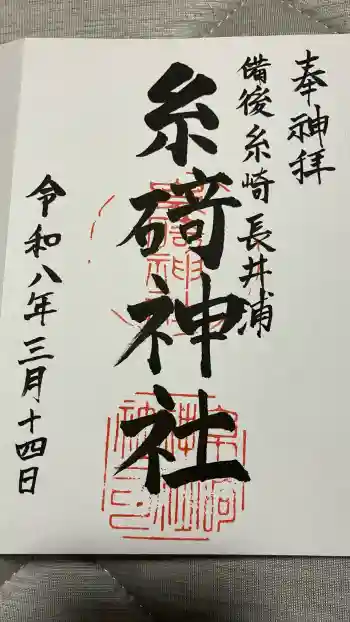 奉神拝
備後 糸崎 長井浦
糸碕神社
令和八年三月十四日